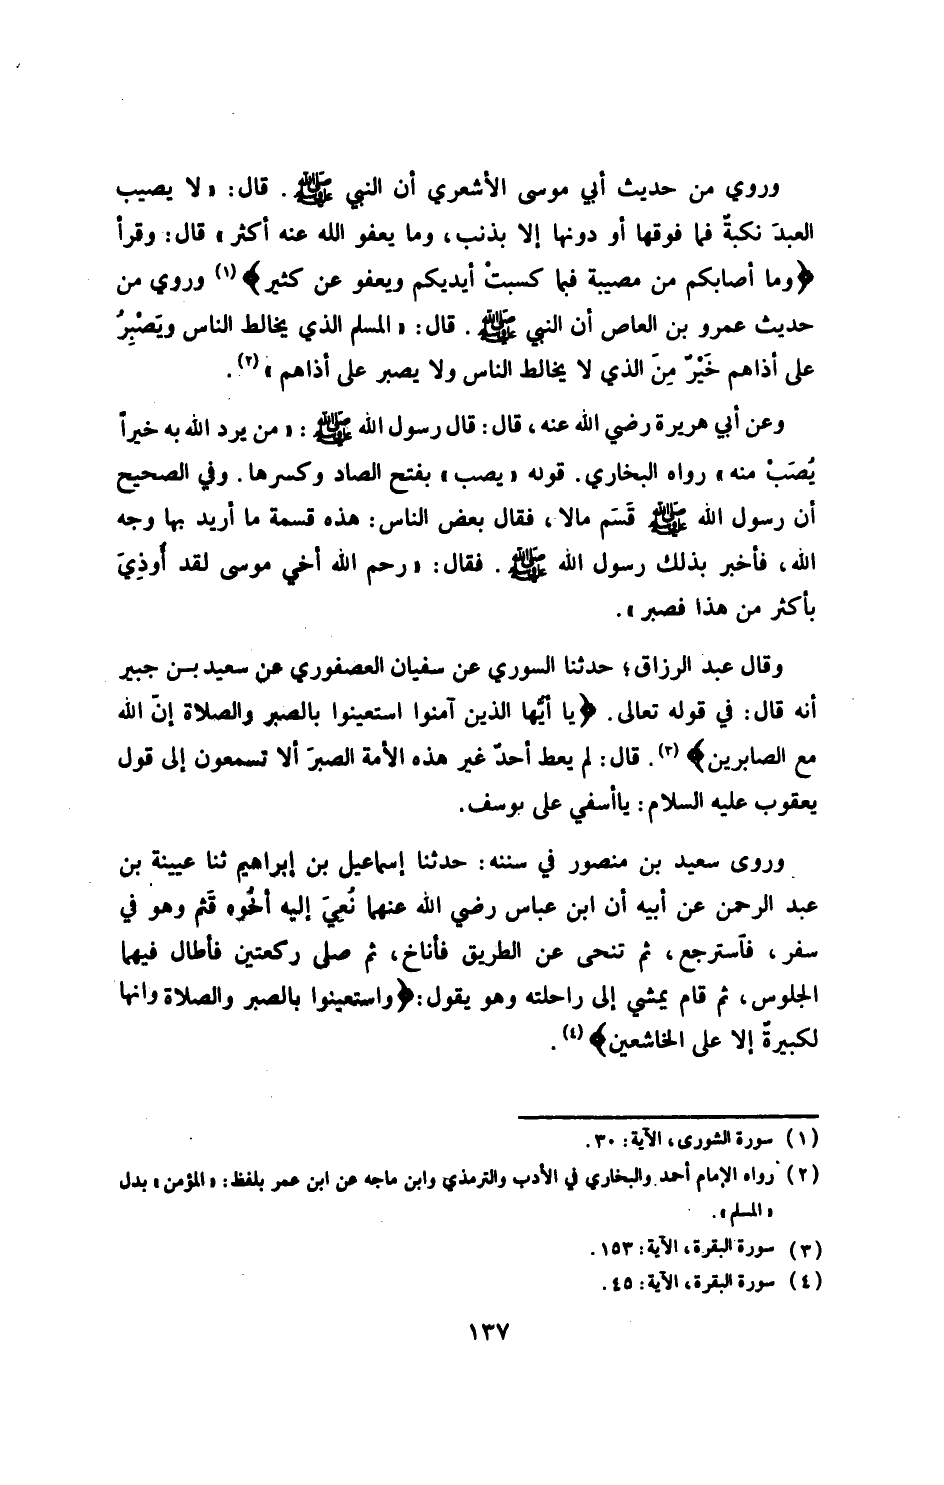 وروي من حديث أبي موسى الأشعري أن النبي ﷺ . قال: « لا يصيب
العبدَ نكبةٌ فما فوقها أو دونها إلا بذنب، وما يعفو الله عنه أكثر » قال: وقرأ
﴿وما أصابكم من مصيبة فبما كسبتْ أيديكم ويعفو عن كثير﴾ (١) وروي من
حديث عمرو بن العاص أن النبي ﷺ . قال: « المسلم الذي يخالط الناس ويَصْبِرُ
على أذاهم خَيْرٌ مِنَ الذي لا يخالط الناس ولا يصبر على أذاهم » (٢) .
وعن أبي هريرة رضي الله عنه ، قال: قال رسول الله ﷺ : « من يرد الله به خيراً
يُصَبْ منه » رواه البخاري. قوله « يصب » بفتح الصاد وكسرها. وفي الصحيح
أن رسول الله ﷺ قَسَم مالا ، فقال بعض الناس: هذه قسمة ما أريد بها وجه
الله ، فأخبر بذلك رسول الله ﷺ . فقال: « رحم الله أخي موسى لقد أُوذِيَ
بأكثر من هذا فصبر » .
وقال عبد الرزاق؛ حدثنا السوري عن سفيان العصفوري عن سعيد بـن جبير
أنه قال: في قوله تعالى. ﴿يا أيُّها الذين آمنوا استعينوا بالصبر والصلاة إنّ الله
مع الصابرين﴾ (٣). قال: لم يعط أحدٌ غير هذه الأمة الصبرَ ألا تسمعون إلى قول
يعقوب عليه السلام: ياأسفي على يوسف.
وروى سعيد بن منصور في سننه: حدثنا إسماعيل بن إبراهيم ثنا عيينة بن
عبد الرحمن عن أبيه أن ابن عباس رضي الله عنهما نُعِيَ إليه أخُوه قَثم وهو في
سفر ، فآسترجع ، ثم تنحى عن الطريق فأناخ، ثم صلى ركعتين فأطال فيهما
الجلوس، ثم قام يمشي إلى راحلته وهو يقول: ﴿واستعينوا بالصبر والصلاة وانها
لكبيرةٌ إلا على الخاشعين﴾ (٤) .
(١) سورة الشورى، الآية: ٣٠ .
(٢) رواه الإمام أحمد والبخاري في الأدب والترمذي وابن ماجه عن ابن عمر بلفظ: « المؤمن » بدل
« المسلم » .
(٣) سورة البقرة، الآية: ١٥٣ .
(٤) سورة البقرة، الآية: ٤٥ .
١٣٧